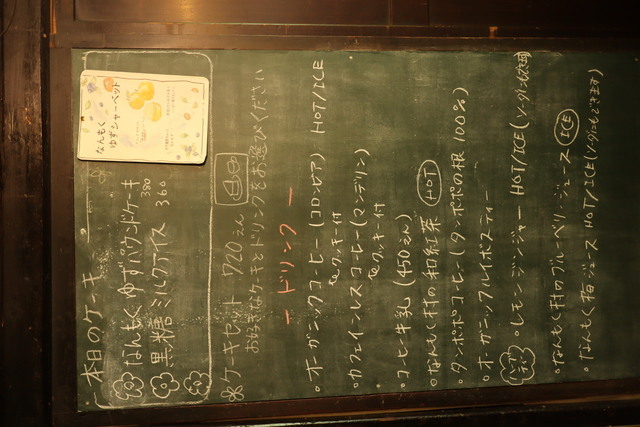 本日のケーキ
なんもくゆずパウンドケーキ 380
黒糖ミルクアイス 360
なんもく
ゆずシャーベット
ケーキセット 720えん
お好きなケーキとドリンクをお選びください
ー ドリンク ー
・オーガニックコーヒー(コロンビア) HOT/ICE
クッキー付
・カフェインレスコーヒー(マンデリン)
クッキー付
・コーヒー牛乳(450えん)
・なんもく村の和紅茶 HOT
・タンポポコーヒー(タンポポの根100%)
・オーガニックルイボスティー
・レモンジンジャー HOT/ICE
・なんもく村のブルーベリージュース ICE
・なんもく梅ジュース HOT/ICE(ソーダもできます)